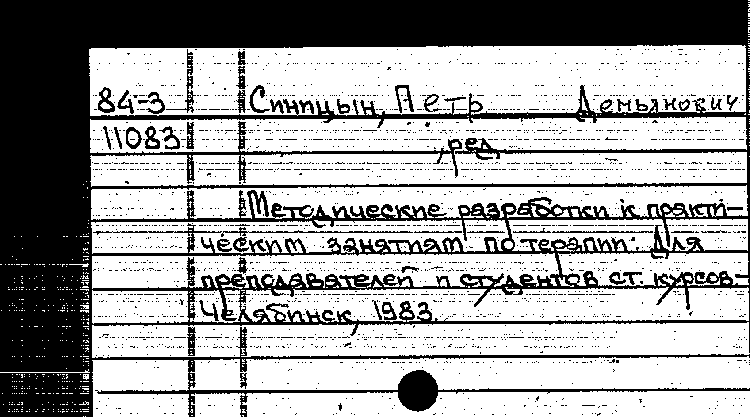 84-3 Синицын, Петр Демьянович
11083 , ред.
Методические разработки к практи-
ческим занятиям по терапии: Для
преподавателей и студентов ст. курсов-
Челябинск, 1983.